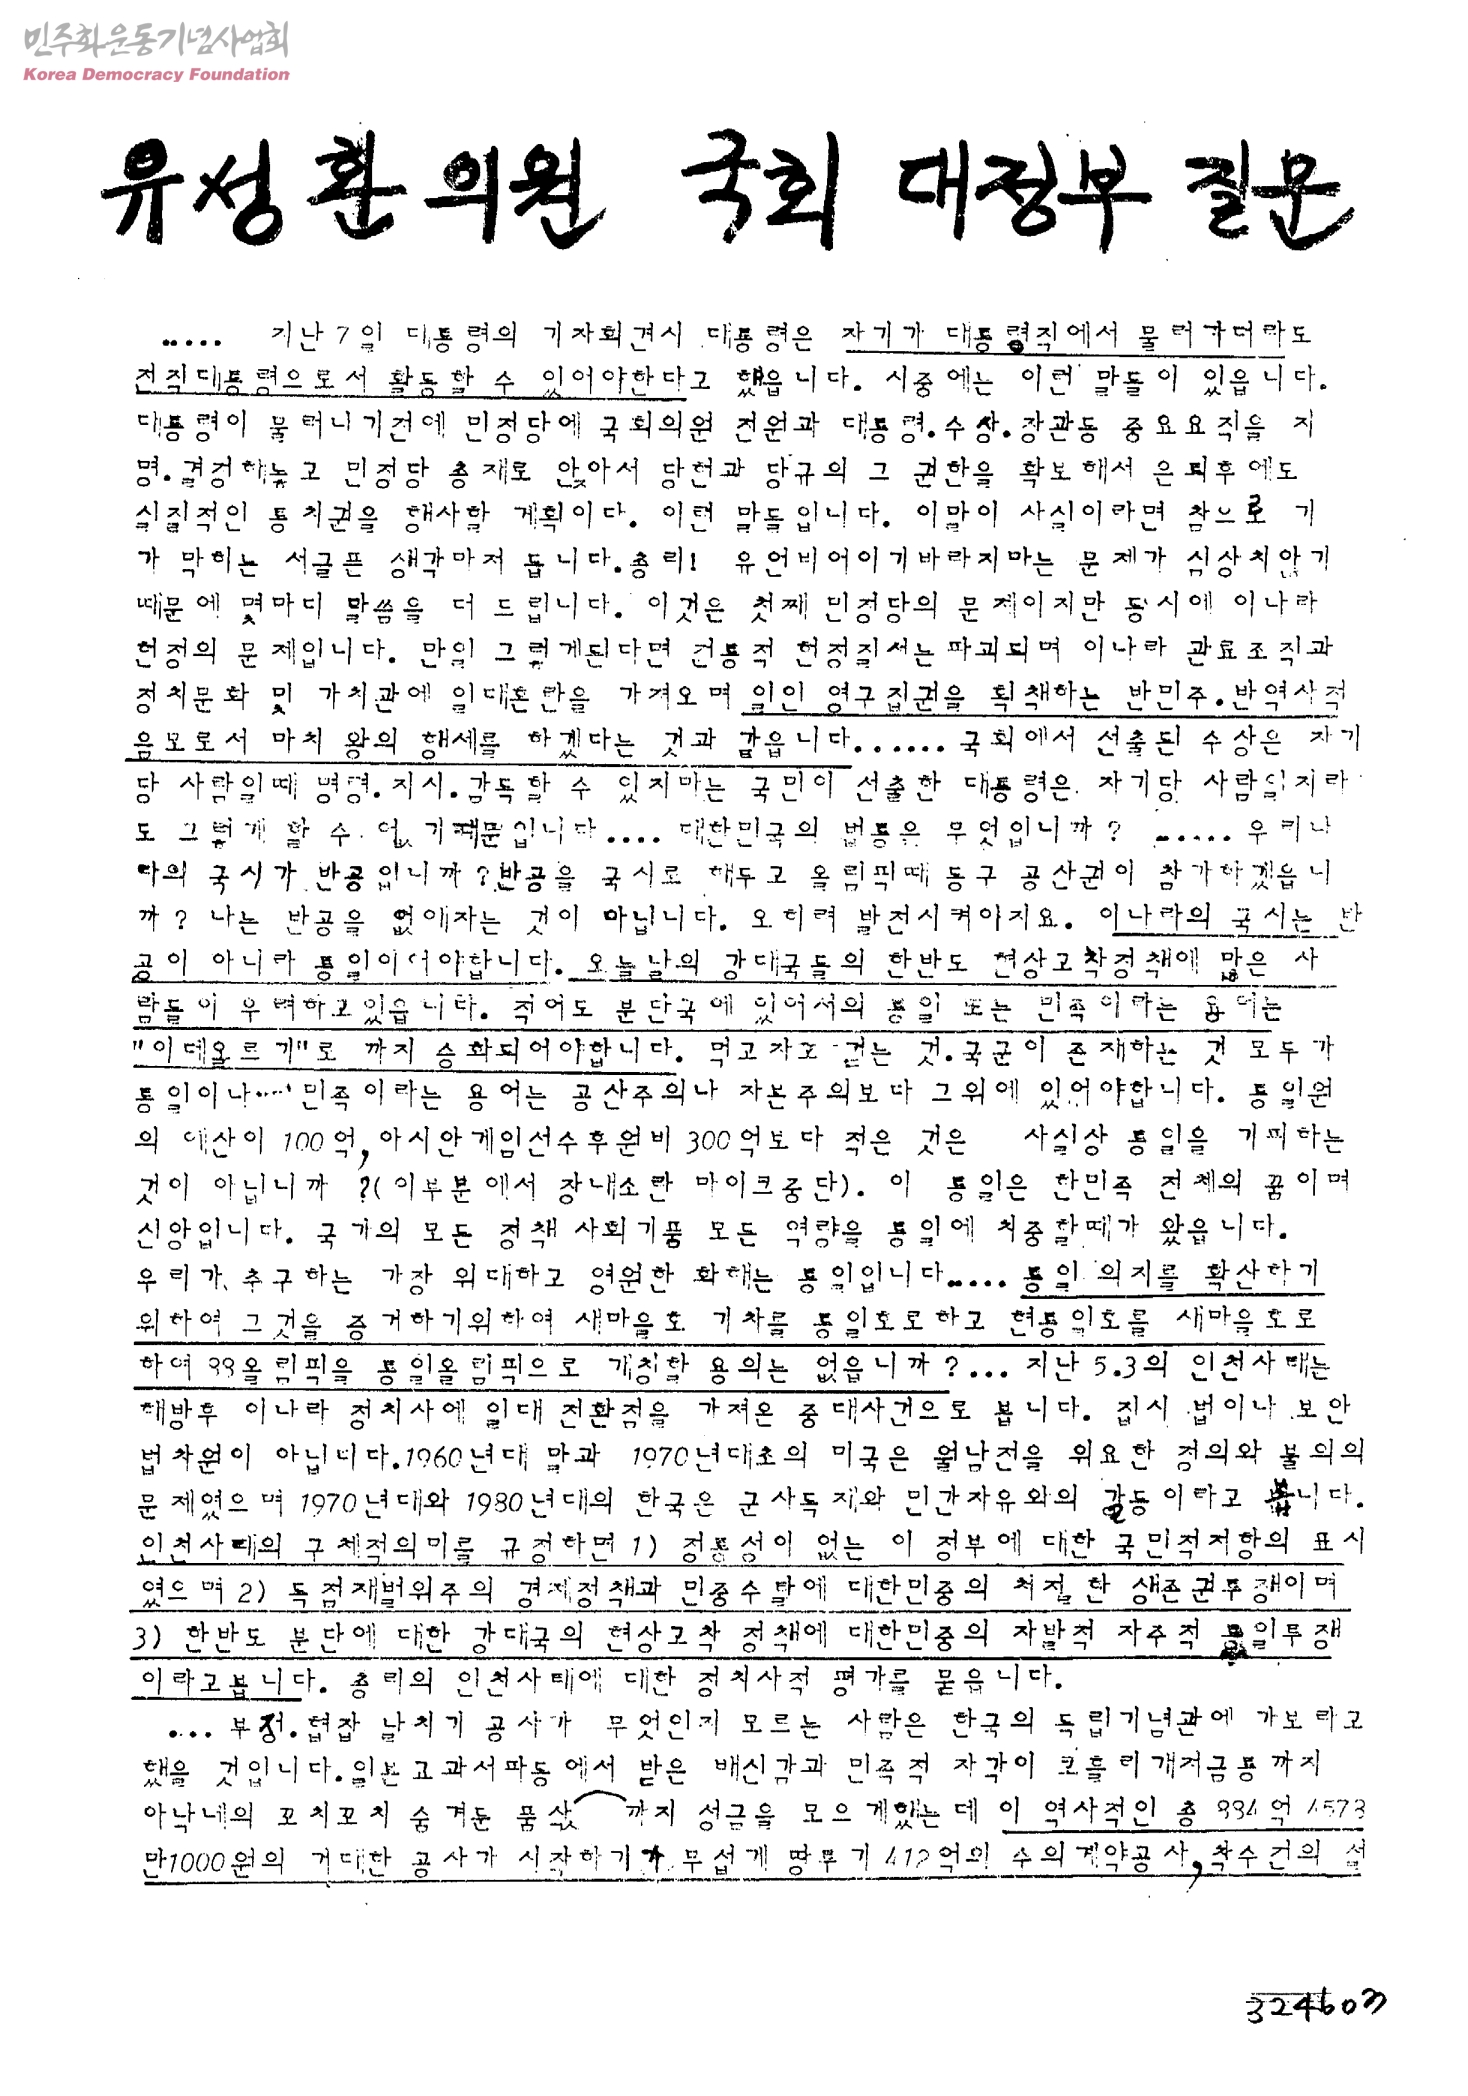 민주화운동기념사업회
Korea Democracy Foundation
유성환 의원 국회 대정부 질문
..... 지난 7일 대통령의 기자회견시 대통령은 자기가 대통령직에서 물러가더라도
전직대통령으로서 활동할 수 있어야한다고 했읍니다. 시중에는 이런 말들이 있읍니다.
대통령이 물러나기전에 민정당에 국회의원 전원과 대통령.수상.장관등 중요요직을 지
명.결정해놓고 민정당 총재로 앉아서 당헌과 당규의 그 권한을 확보해서 은퇴후에도
실질적인 통치권을 행사할 계획이다. 이런 말들입니다. 이말이 사실이라면 참으로 기
가 막히는 서글픈 생각마저 듭니다.총리! 유언비어이기바라지마는 문제가 심상치않기
때문에 몇마디 말씀을 더 드립니다. 이것은 첫째 민정당의 문제이지만 동시에 이나라
헌정의 문제입니다. 만일 그렇게된다면 전통적 헌정질서는파괴되며 이나라 관료조직과
정치문화 및 가치관에 일대혼란을 가져오며 일인 영구집권을 획책하는 반민주.반역사적
음모로서 마치 왕의 행세를 하겠다는 것과 같읍니다...... 국회에서 선출된 수상은 자기
당 사람일때 명령.지시.감독할 수 있지마는 국민이 선출한 대통령은 자기당 사람일지라
도 그렇게 할 수 없기때문입니다.... 대한민국의 법통은 무엇입니까? ...... 우리나
라의 국시가 반공입니까?반공을 국시로 해두고 올림픽때 동구 공산권이 참가하겠읍니
까? 나는 반공을 없애자는 것이 아닙니다. 오히려 발전시켜야지요. 이나라의 국시는 반
공이 아니라 통일이어야합니다. 오늘날의 강대국들의 한반도 현상고착정책에 많은 사
람들이 우려하고있읍니다. 적어도 분단국에 있어서의 통일 또는 민족이라는 용어는
"이데올로기"로 까지 승화되어야합니다. 먹고자고 걷는 것.국군이 존재하는 것 모두가
통일이나.... 민족이라는 용어는 공산주의나 자본주의보다 그위에 있어야합니다. 통일원
의 예산이 100억,아시안게임선수후원비 300억보다 적은 것은 사실상 통일을 기피하는
것이 아닙니까 ?(이부분에서 장내소란 마이크중단). 이 통일은 한민족 전체의 꿈이며
신앙입니다. 국가의 모든 정책 사회기풍 모든 역량을 통일에 치중할때가 왔읍니다.
우리가 추구하는 가장 위대하고 영원한 화해는 통일입니다..... 통일 의지를 확산하기
위하여 그것을 증거하기위하여 새마을호 기차를 통일호로하고 현통일호를 새마을호로
하여 88올림픽을 통일올림픽으로 개칭할 용의는 없읍니까?... 지난 5.3의 인천사태는
해방후 이나라 정치사에 일대 전환점을 가져온 중대사건으로 봅니다. 집시 법이나 보안
법차원이 아닙니다.1960년대 말과 1970년대초의 미국은 월남전을 위요한 정의와 불의의
문제였으며 1970년대와 1980년대의 한국은 군사독재와 민간자유와의 갈등이라고 봅니다.
인천사태의 구체적의미를 규정하면 1) 정통성이 없는 이 정부에 대한 국민적저항의 표시
였으며 2) 독점재벌위주의 경제정책과 민중수탈에 대한민중의 처절한 생존권투쟁이며
3) 한반도 분단에 대한 강대국의 현상고착 정책에 대한민중의 자발적 자주적 통일투쟁
이라고봅니다. 총리의 인천사태에 대한 정치사적 평가를 묻읍니다.
... 부정.협잡 날치기 공사가 무엇인지 모르는 사람은 한국의 독립기념관에 가보라고
했을 것입니다.일본교과서파동에서 받은 배신감과 민족적 자각이 코흘리개저금통까지
아낙네의 꼬치꼬치 숨겨둔 품삯까지 성금을 모으게했는데 이 역사적인 총 884억 4578
만1000원의 거대한 공사가 시작하기가 무섭게 땅투기 412억의 수의계약공사,착수건의 설
324607